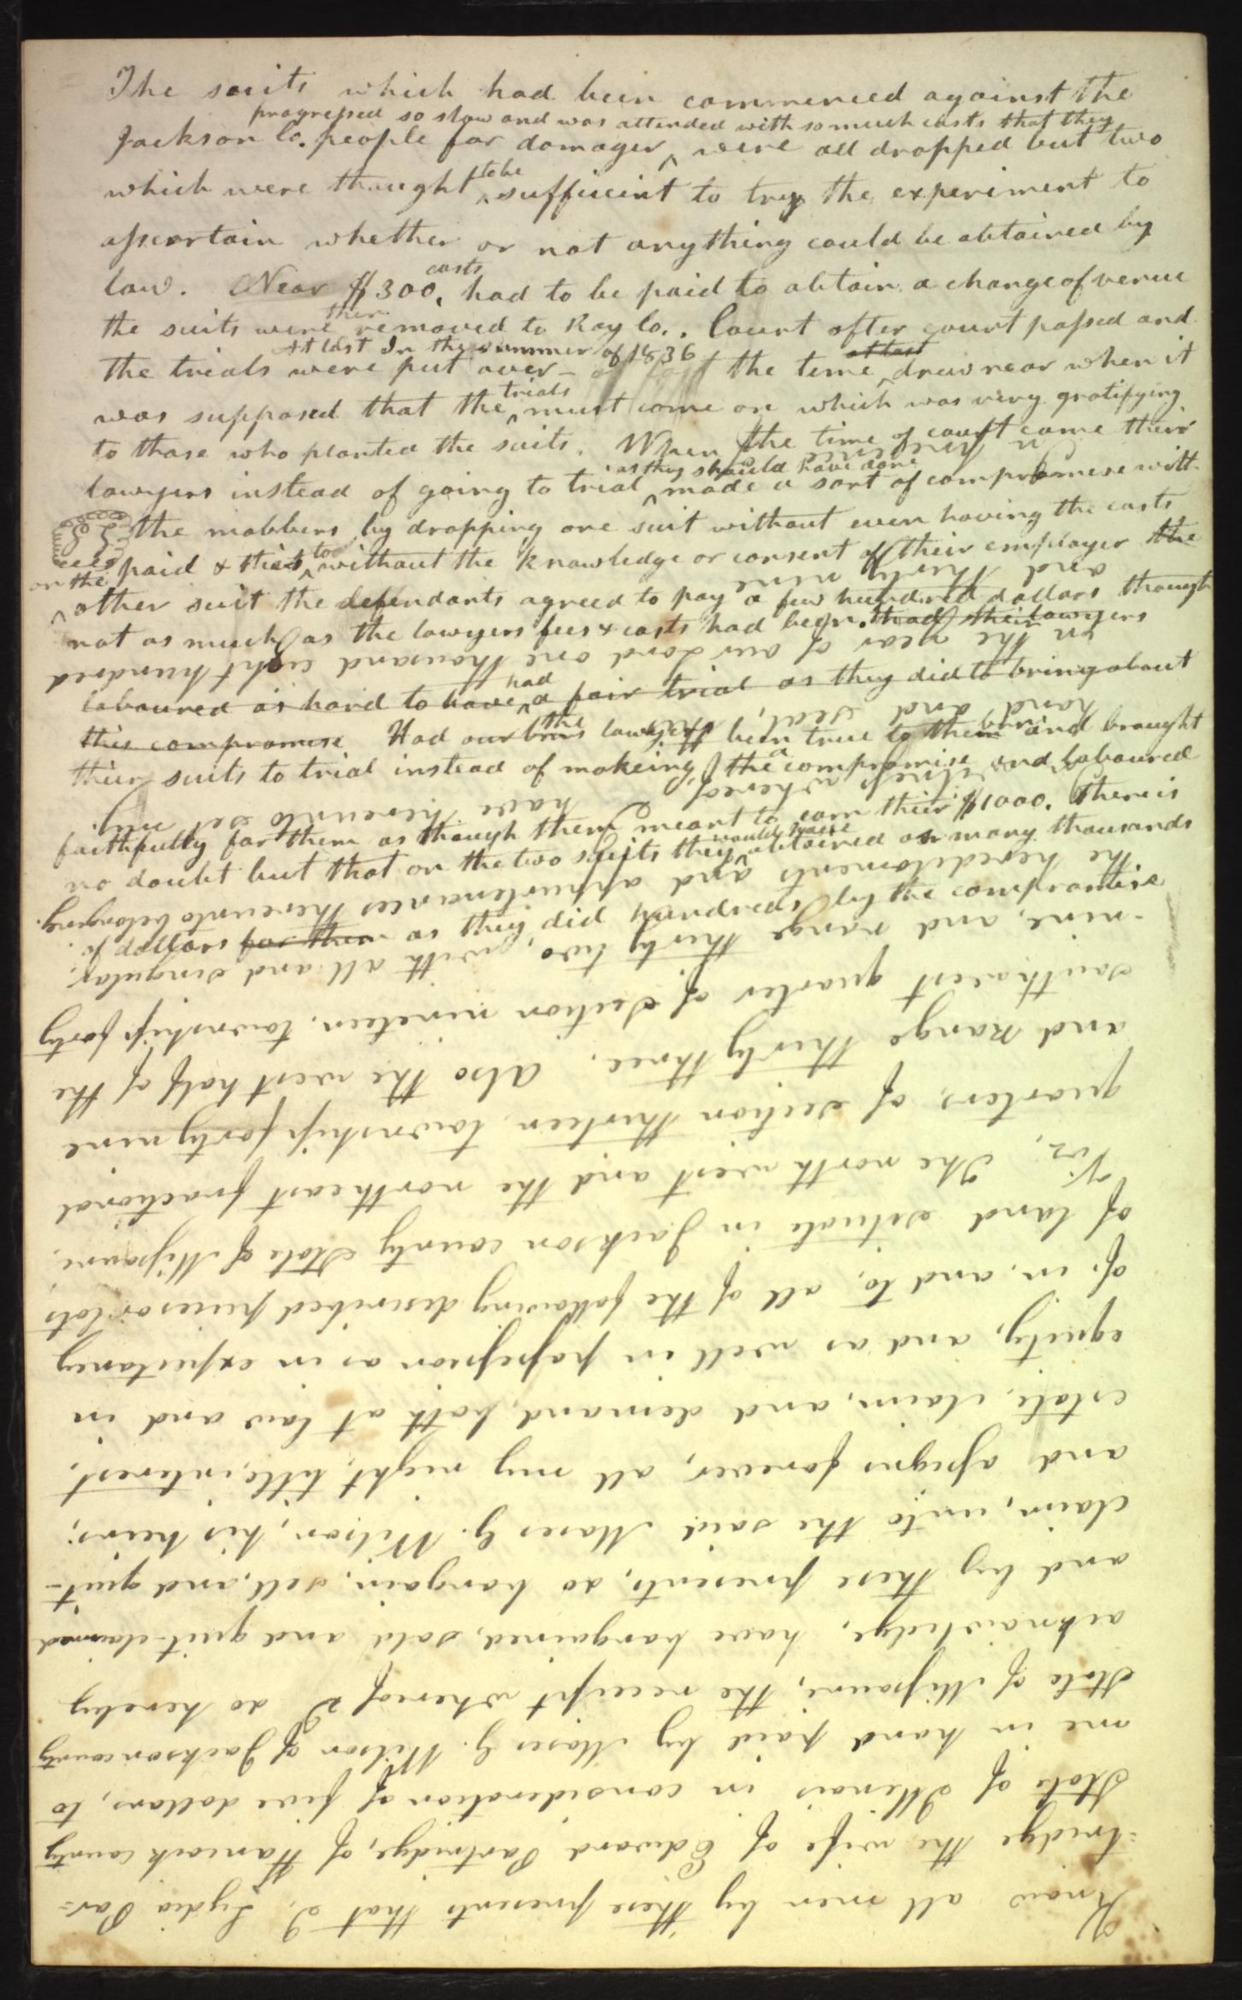 The suits which had been commenced against the
progressed so slow and was attended with so much costs that they
Jackson Co. people for damages ^ were all dropped but two
which were thought ^to be sufficient to try the experiment to
assertain whether or not anything could be obtained by
law. Near $300, ^costs had to be paid to obtain a change of venue
the suits were ^then removed to Ray Co.. Court after court passed and
At last In the summer of 1836
the trials were put over – the time at last ^ drew near when it
was supposed that the ^trials must come on which was very gratifying
to those who planted the suits. When the time of court came their
lawyers instead of going to trial ^as they should have done made a sort of compromise with
the mobbers by dropping one suit without even having the costs
paid & this ^too without the knowledge or consent of their employer the
on the
^ other suit the defendants agreed to pay a few hundred dollars though
not as much as the lawyers fees & costs had been. had their lawyers
laboured as hard to have ^had a fair trial as they did to bring about
this compromise. Had ^the lawyers been true to them and brought
their suits to trial instead of makeing the ^a compromise and laboured
faithfully for them as though them meant to earn their $1000. There is
no doubt but that on the two suits they ^would have obtained as many thousands
of dollars for them as they did hundreds by the compromise
Know all men by these presents that I, Lydia Par=
=tridge the wife of Edward Partridge, of Hancock county
State of Illenois in consideration of five dollars, to
me in hand paid by Moses G. Wilson of Jackson county
State of Missouri, the receipt whereof I do hereby
acknowledge, have bargained, sold and quit-claimed
and by these presents, do bargain, sell, and quit-
claim, unto the said Moses G. Wilson, his heirs,
and assigns forever, all my right, title, interest,
estate, claim, and demand, both at law and in
equity, and as well in possession as in expectancy
of, in, and to, all of the following described pieces or lots
of land situate in Jackson county State of Missouri,
Viz, The north west and the northeast fractional
quarters, of section thirteen, township forty nine
and range thirty three. Also the west half of the
southwest quarter of section nineteen, township forty
-nine, and range thirty two, with all and singular,
the hereditaments and appurtenances thereunto belonging.
In witness whereof I have hereunto set my
hand and seal,
in the year of our Lord one thousand eight hundred
and thirty nine
In presence